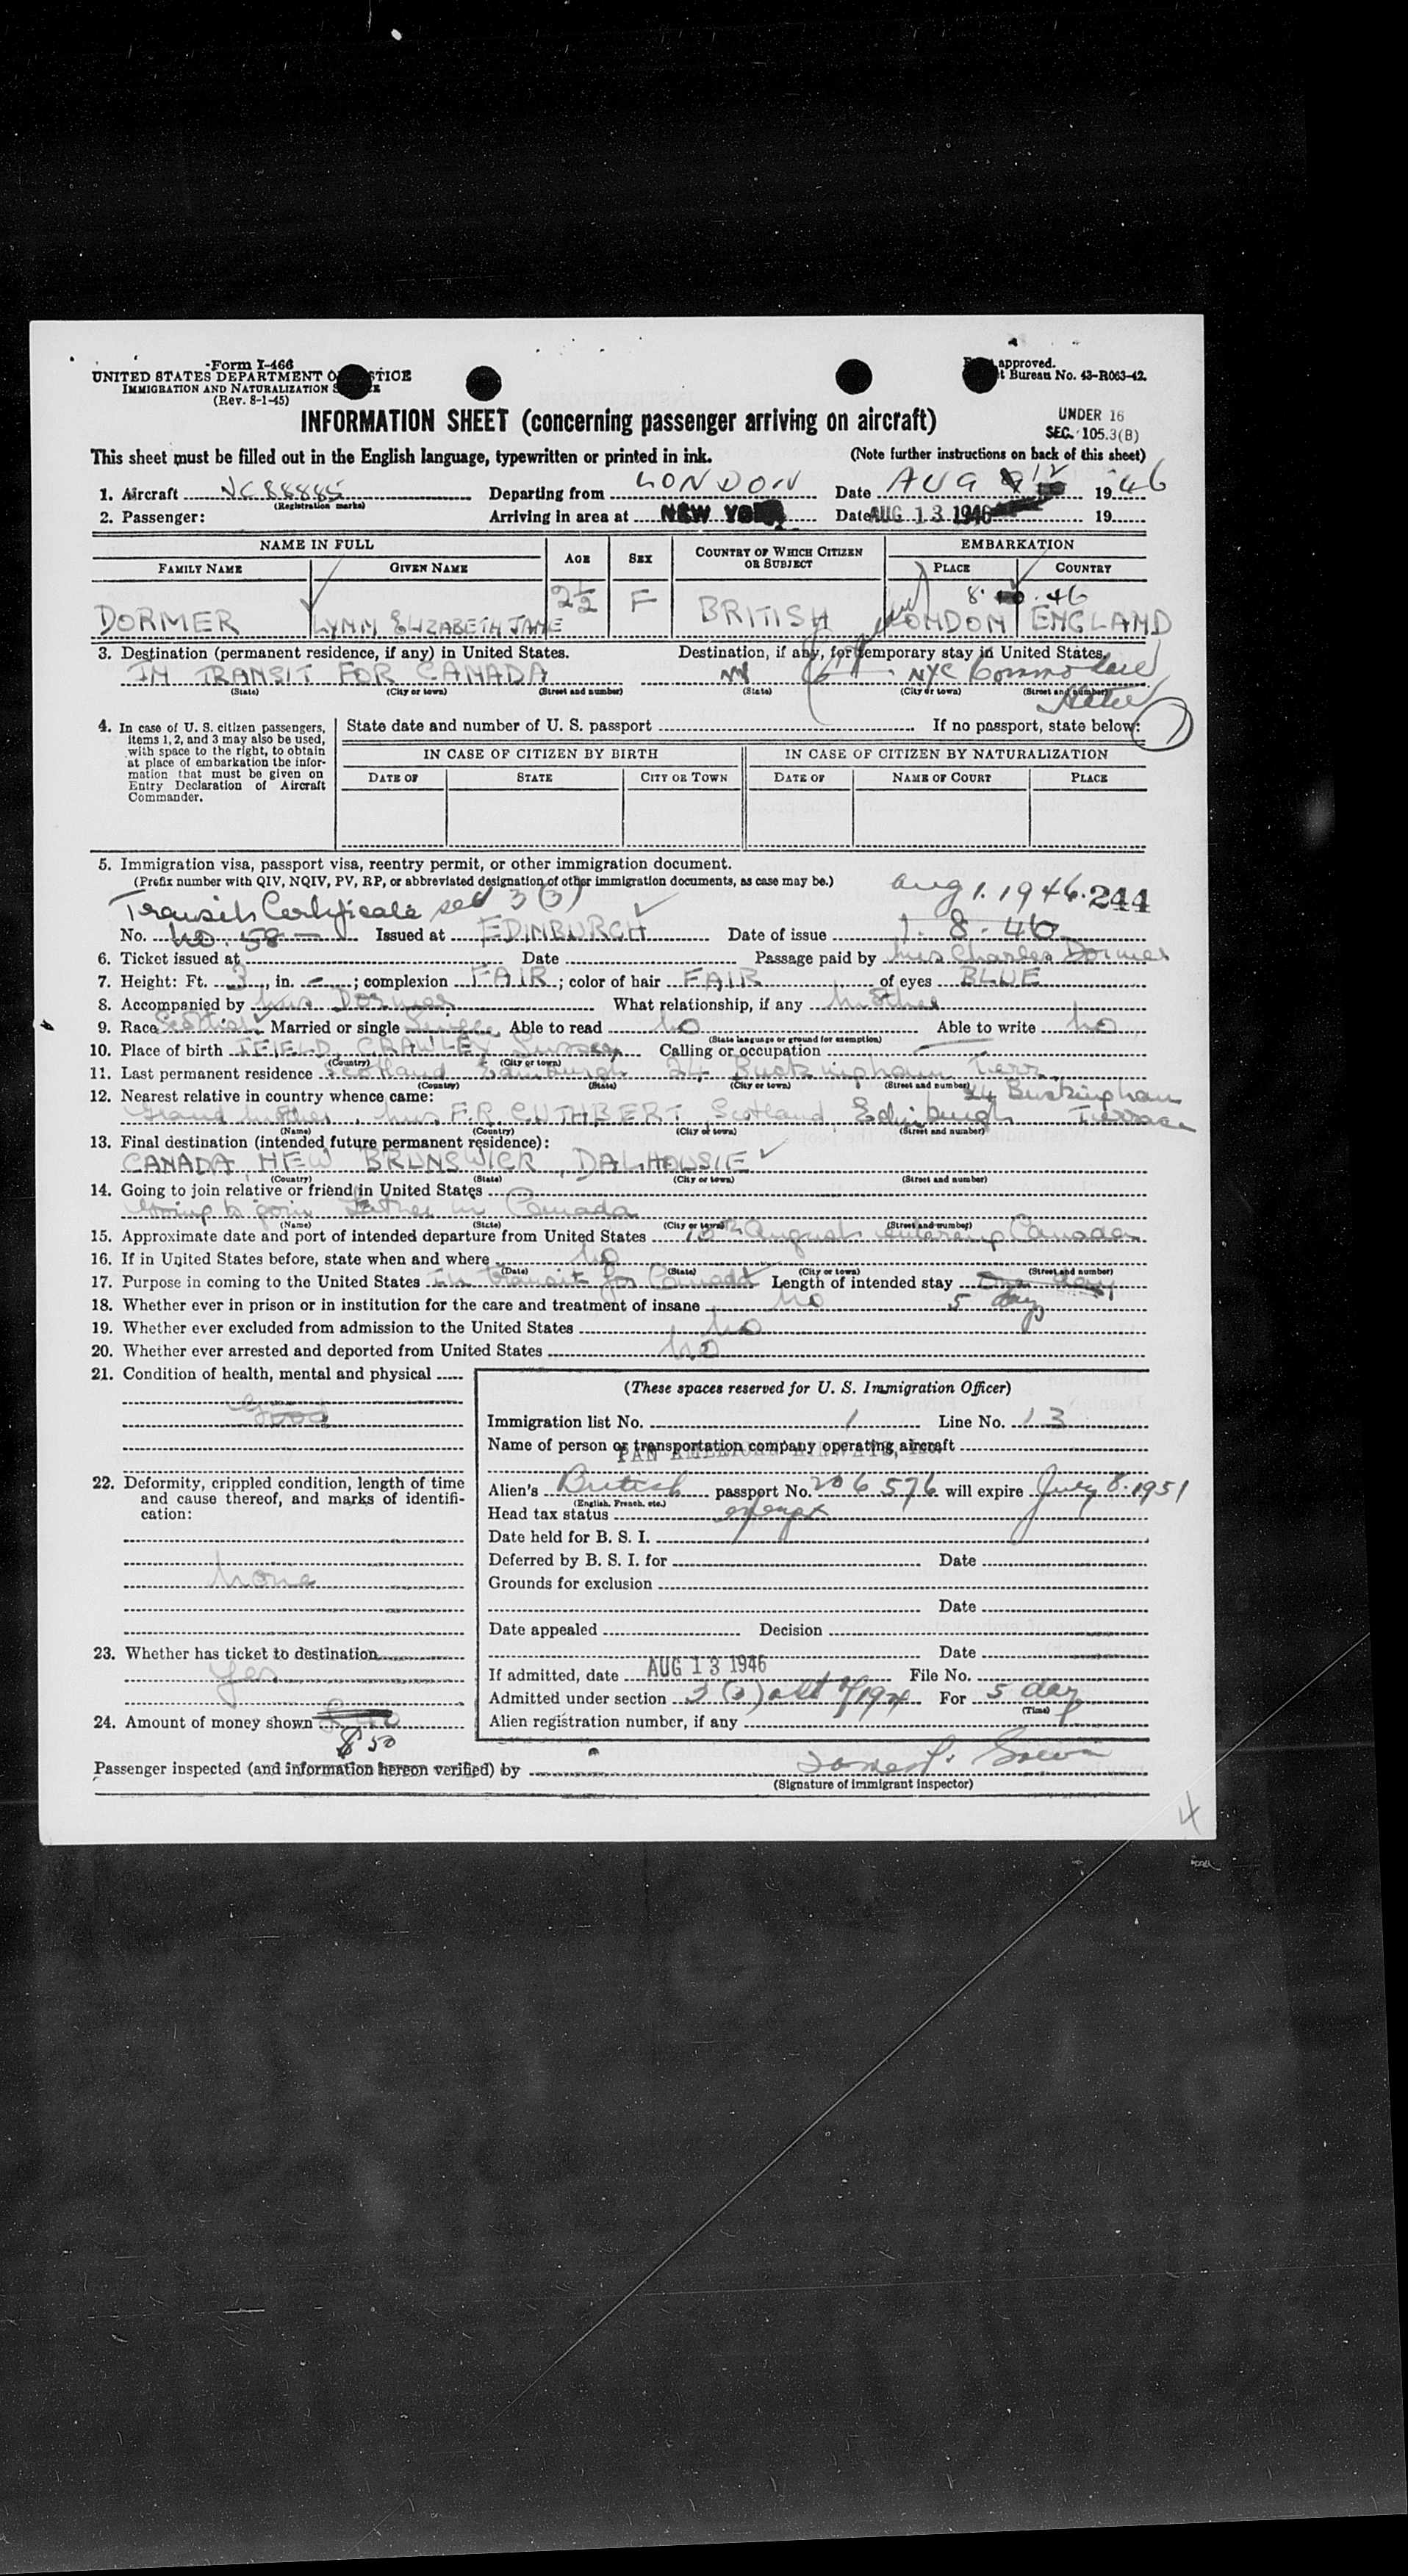 Form I-466
UNITED STATES DEPARTMENT OF JUSTICE
IMMIGRATION AND NATURALIZATION
(Rev. 8-1-45)
approved.
t Bureau No. 43-R063-42.
INFORMATION SHEET (concerning passenger arriving on aircraft)
UNDER 16
SEC. 105.3(B)
This sheet must be filled out in the English language, typewritten or printed in ink. (Note further instructions on back of this sheet)
1. Aircraft NC88885 Departing from LONDON Date AUG 12 1946
(Registration marks)
2. Passenger: Arriving in area at NEW YORK Date AUG 13 1946 19
NAME IN FULL AGE SEX COUNTRY OF WHICH CITIZEN OR SUBJECT EMBARKATION
FAMILY NAME GIVEN NAME PLACE COUNTRY
8. .46
DORMER LYNN ELIZABETH JANE 2½ F BRITISH LONDON ENGLAND
3. Destination (permanent residence, if any) in United States. Destination, if any, for temporary stay in United States.
IN TRANSIT FOR CANADA NY NYC Commodore
(State) (City or town) (Street and number) (State) (City or town) (Street and number)
Hotel
4. In case of U. S. citizen passengers, items 1, 2, and 3 may also be used, with space to the right, to obtain at place of embarkation the information that must be given on Entry Declaration of Aircraft Commander.
State date and number of U. S. passport If no passport, state below:
IN CASE OF CITIZEN BY BIRTH IN CASE OF CITIZEN BY NATURALIZATION
DATE OF STATE CITY OR TOWN DATE OF NAME OF COURT PLACE
5. Immigration visa, passport visa, reentry permit, or other immigration document.
(Prefix number with QIV, NQIV, PV, RP, or abbreviated designation of other immigration documents, as case may be.)
Aug 1. 1946. 244
Transit Certificate sec 3 (3)
No. No. 58 Issued at EDINBURGH Date of issue 1. 8. 46
6. Ticket issued at Date Passage paid by Mrs Charles Dormer
7. Height: Ft. 3, in. -; complexion FAIR; color of hair FAIR of eyes BLUE
8. Accompanied by Mrs Dormer What relationship, if any Mother
9. Race Scottish Married or single Single Able to read No Able to write No
(State language or ground for exemption)
10. Place of birth IFIELD CRAWLEY Sussex Calling or occupation
(Country) (City or town)
11. Last permanent residence Scotland Edinburgh 24 Buckingham Terr
(Country) (State) (City or town) (Street and number)
12. Nearest relative in country whence came: 24 Buckingham
Grand Mother, Mrs F.R. CUTHBERT Scotland Edinburgh Terrace
(Name) (Country) (City or town) (Street and number)
13. Final destination (intended future permanent residence):
CANADA, NEW BRUNSWICK, DALHOUSIE
(Country) (State) (City or town) (Street and number)
14. Going to join relative or friend in United States
Going to join Father in Canada
(Name) (State) (City or town) (Street and number)
15. Approximate date and port of intended departure from United States August entering Canada
16. If in United States before, state when and where No
(Date) (State) (City or town) (Street and number)
17. Purpose in coming to the United States In transit for Canada Length of intended stay One day
18. Whether ever in prison or in institution for the care and treatment of insane No 5 days
19. Whether ever excluded from admission to the United States No
20. Whether ever arrested and deported from United States No
21. Condition of health, mental and physical
Good
(These spaces reserved for U. S. Immigration Officer)
Immigration list No. 1 Line No. 13
Name of person or transportation company operating aircraft
PAN AMERICAN AIRWAYS, Inc.
22. Deformity, crippled condition, length of time and cause thereof, and marks of identification:
None
Alien's British passport No. 206576 will expire July 8. 1951
(English, French, etc.)
Head tax status exempt
Date held for B. S. I.
Deferred by B. S. I. for Date
Grounds for exclusion
Date
Date appealed Decision
Date
23. Whether has ticket to destination
Yes
If admitted, date AUG 13 1946 File No.
Admitted under section 3 (3) act of 1924 For 5 days
(Time)
24. Amount of money shown
$ 50
Alien registration number, if any
Passenger inspected (and information hereon verified) by
(Signature of immigrant inspector)
4